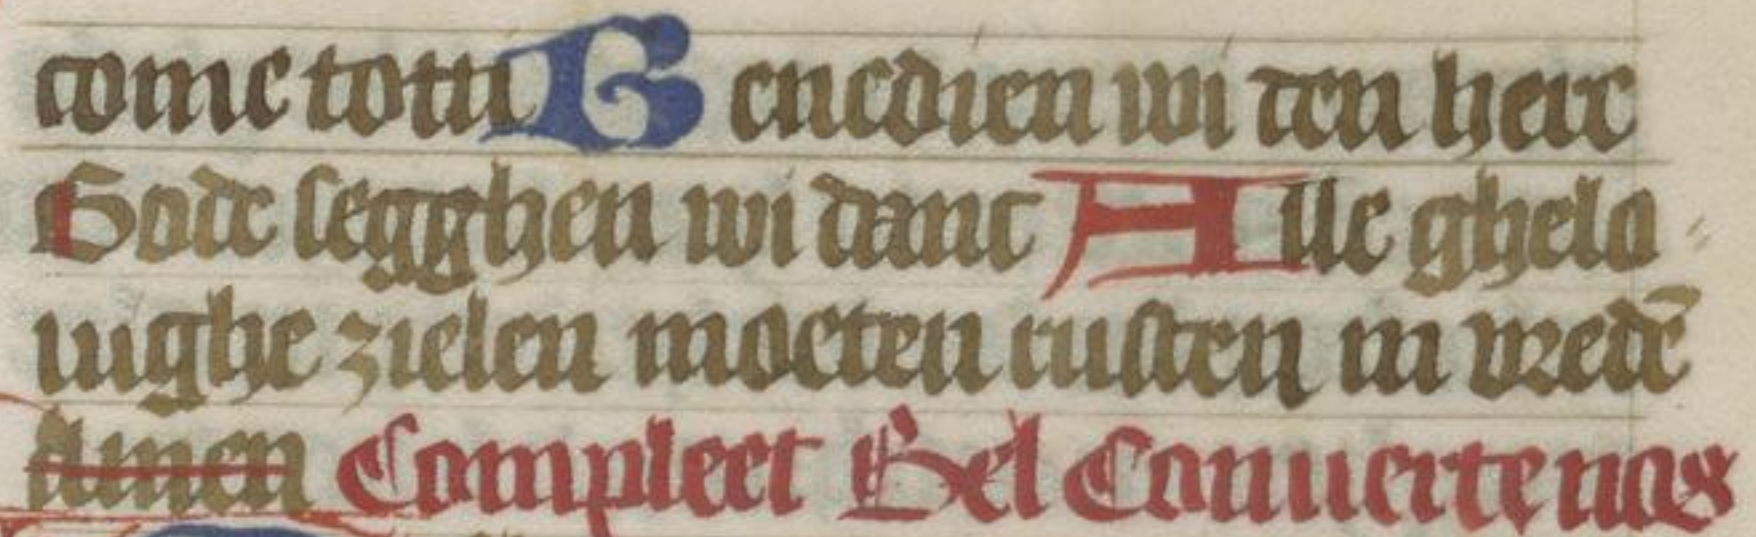 come totti Benedien wi den here
Gode segghen wi danc Alle ghelo
uighe zielen moeten rusten in vredē
Amen Compleet Bel Conuerte nos